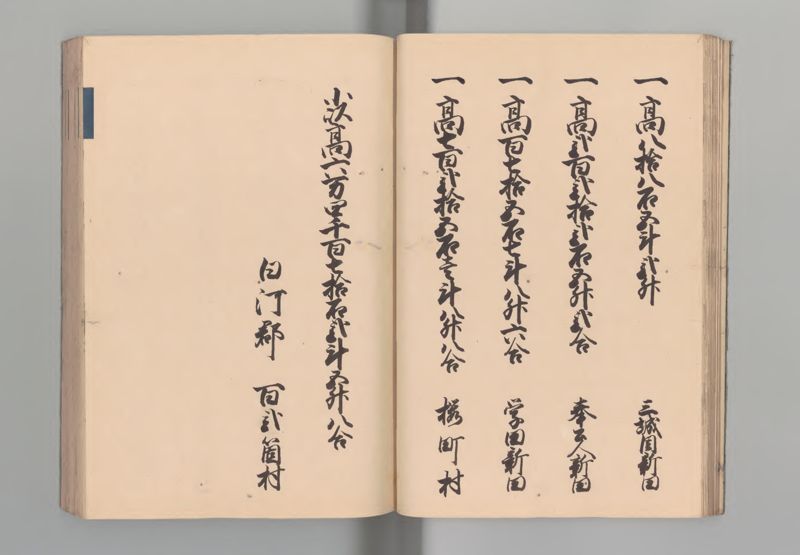 一高八拾八石五斗弐升 三城目新田
一高弐百弐拾弐石五升弐合 奉公人新田
一高百七拾五石七斗八升六合 学田新田
一高七百弐拾五石壱斗八升八合 桜町村
小以高六万四千百七拾石弐斗五升八合
白河郡 百弐箇村